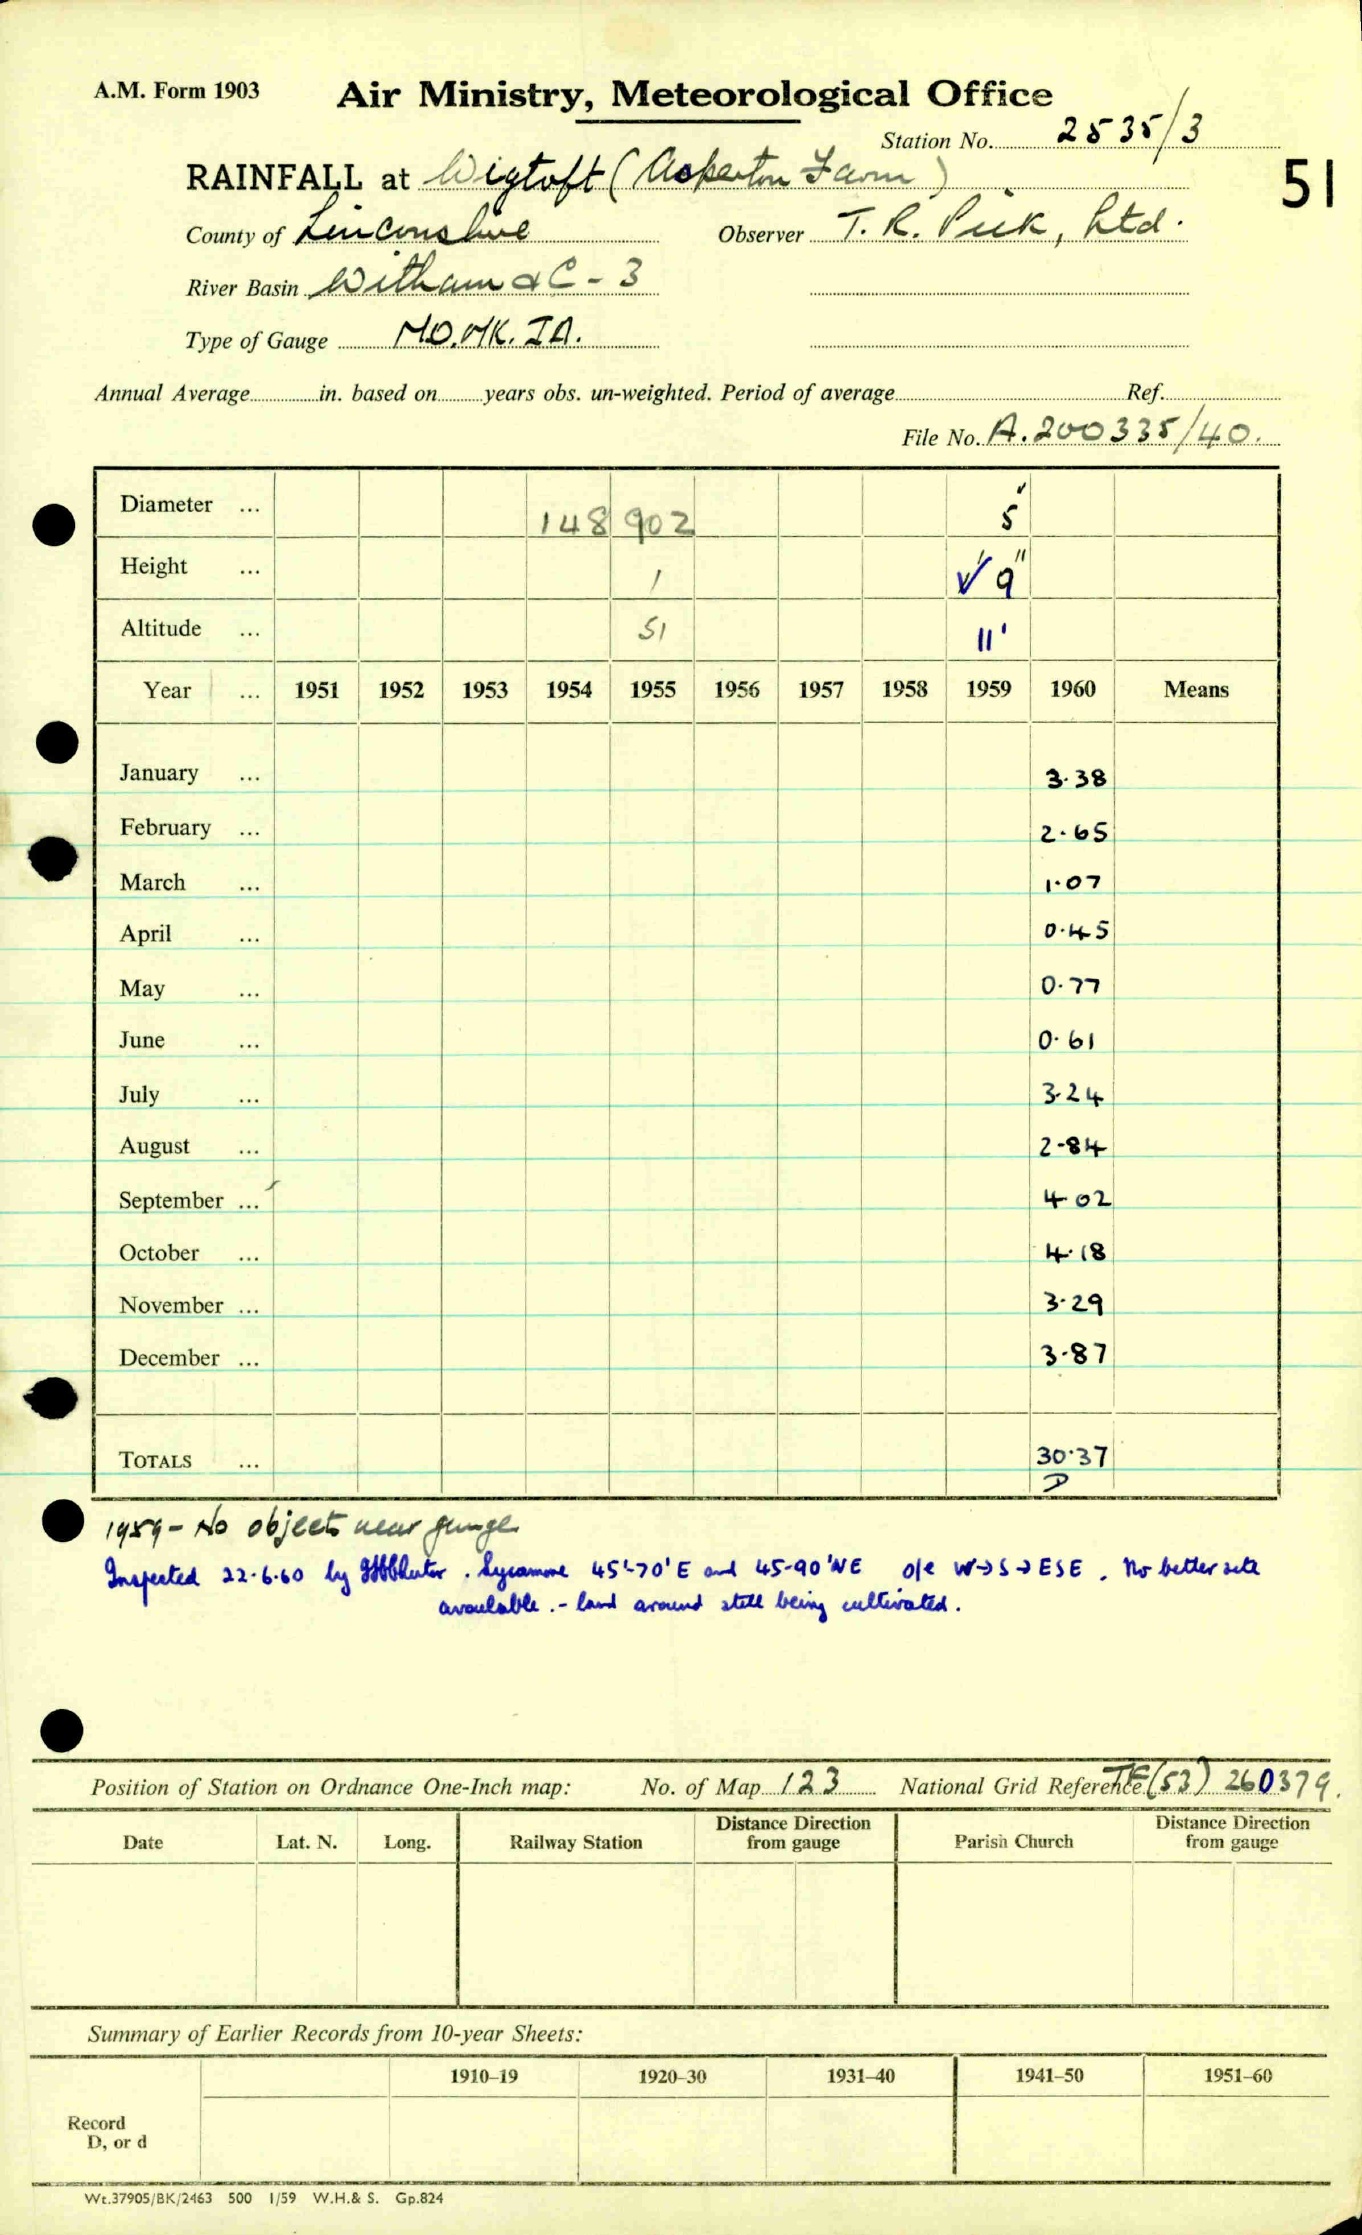 A.M. Form 1903
Air Ministry, Meteorological Office
Station No. 2535/3
51
RAINFALL at Wigtoft (Asperton Farm)
County of Linconshire
Observer T. R. Pick, Ltd.
River Basin Witham &C - 3
Type of Gauge MO.MK.IA.
Annual Average in. based on years obs. un-weighted. Period of average Ref.
File No. A.200335/40.
Diameter ... 148 902 5"
Height ... 1 1' 9"
Altitude ... 51 11'
Year ... 1951 1952 1953 1954 1955 1956 1957 1958 1959 1960 Means
January ... 3.38
February ... 2.65
March ... 1.07
April ... 0.45
May ... 0.77
June ... 0.61
July ... 3.24
August ... 2.84
September ... 4.02
October ... 4.18
November ... 3.29
December ... 3.87
TOTALS ... 30.37
D
1959 - No objects near gauge
Inspected 22.6.60 by . Sycamore 45'-70' E and 45-90' NE o/e W→S→ESE . No better site
available. - land around still being cultivated.
Position of Station on Ordnance One-Inch map: No. of Map 123 National Grid Reference TF(53) 260379.
Date Lat. N. Long. Railway Station Distance Direction from gauge Parish Church Distance Direction from gauge
Summary of Earlier Records from 10-year Sheets:
1910-19 1920-30 1931-40 1941-50 1951-60
Record
D, or d
Wt.37905/BK/2463 500 1/59 W.H.& S. Gp.824